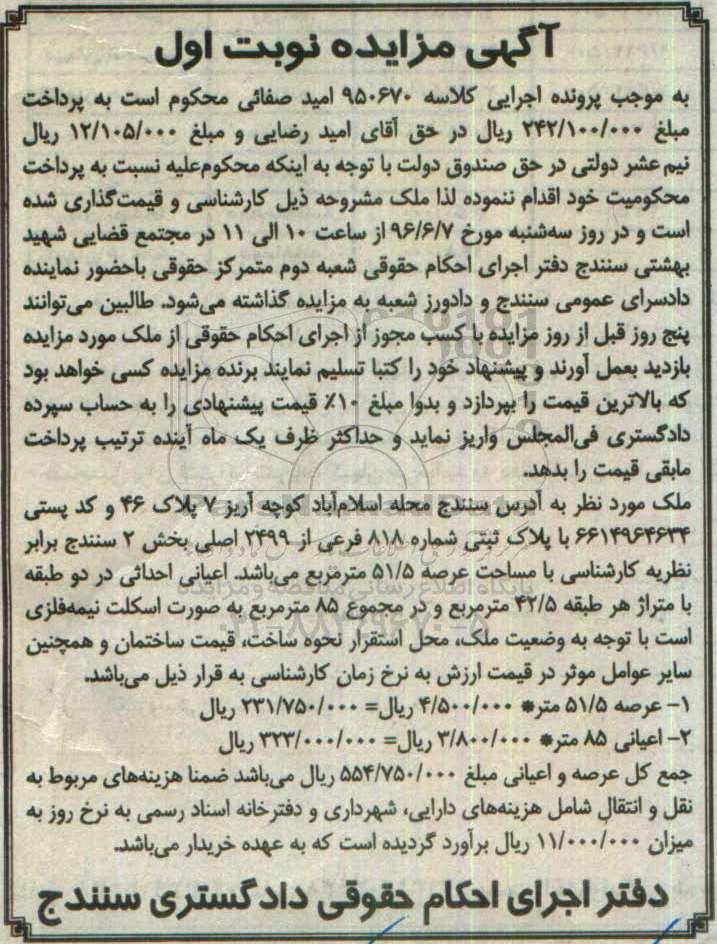 آگهی مزایده نوبت اول
به موجب پرونده اجرایی کلاسه ۹۵۰۶۷۰ امید صفائی محکوم است به پرداخت
مبلغ ۲۴۲/۱۰۰/۰۰۰ ریال در حق آقای امید رضایی و مبلغ ۱۲/۱۰۵/۰۰۰ ریال
نیم عشر دولتی در حق صندوق دولت با توجه به اینکه محکوم‌علیه نسبت به پرداخت
محکومیت خود اقدام ننموده لذا ملک مشروحه ذیل کارشناسی و قیمت‌گذاری شده
است و در روز سه‌شنبه مورخ ۹۶/۶/۷ از ساعت ۱۰ الی ۱۱ در مجتمع قضایی شهید
بهشتی سنندج دفتر اجرای احکام حقوقی شعبه دوم متمرکز حقوقی باحضور نماینده
دادسرای عمومی سنندج و دادورز شعبه به مزایده گذاشته می‌شود. طالبین می‌توانند
پنج روز قبل از روز مزایده با کسب مجوز از اجرای احکام حقوقی از ملک مورد مزایده
بازدید بعمل آورند و پیشنهاد خود را کتبا تسلیم نمایند برنده مزایده کسی خواهد بود
که بالاترین قیمت را بپردازد و بدوا مبلغ ۱۰٪ قیمت پیشنهادی را به حساب سپرده
دادگستری فی‌المجلس واریز نماید و حداکثر ظرف یک ماه آینده ترتیب پرداخت
مابقی قیمت را بدهد.
ملک مورد نظر به آدرس سنندج محله اسلام‌آباد کوچه آریز ۷ پلاک ۴۶ و کد پستی
۶۶۱۴۹۶۴۶۳۴ با پلاک ثبتی شماره ۸۱۸ فرعی از ۲۴۹۹ اصلی بخش ۲ سنندج برابر
نظریه کارشناسی با مساحت عرصه ۵۱/۵ مترمربع می‌باشد. اعیانی احداثی در دو طبقه
با متراژ هر طبقه ۴۲/۵ مترمربع و در مجموع ۸۵ مترمربع به صورت اسکلت نیمه‌فلزی
است با توجه به وضعیت ملک، محل استقرار نحوه ساخت، قیمت ساختمان و همچنین
سایر عوامل موثر در قیمت ارزش به نرخ زمان کارشناسی به قرار ذیل می‌باشد.
۱- عرصه ۵۱/۵ متر* ۴/۵۰۰/۰۰۰ ریال= ۲۳۱/۷۵۰/۰۰۰ ریال
۲- اعیانی ۸۵ متر* ۳/۸۰۰/۰۰۰ ریال= ۳۲۳/۰۰۰/۰۰۰ ریال
جمع کل عرصه و اعیانی مبلغ ۵۵۴/۷۵۰/۰۰۰ ریال می‌باشد ضمنا هزینه‌های مربوط به
نقل و انتقال شامل هزینه‌های دارایی، شهرداری و دفترخانه اسناد رسمی به نرخ روز به
میزان ۱۱/۰۰۰/۰۰۰ ریال برآورد گردیده است که به عهده خریدار می‌باشد.
دفتر اجرای احکام حقوقی دادگستری سنندج